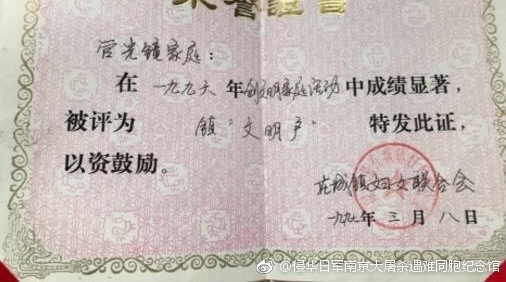 荣誉证书
官光镜家庭：
在一九九六年创文明家庭活动中成绩显著，
被评为 镇“文明户” 特发此证，
以资鼓励。
庄城镇妇女联合会
一九九六年三月八日
@侵华日军南京大屠杀遇难同胞纪念馆